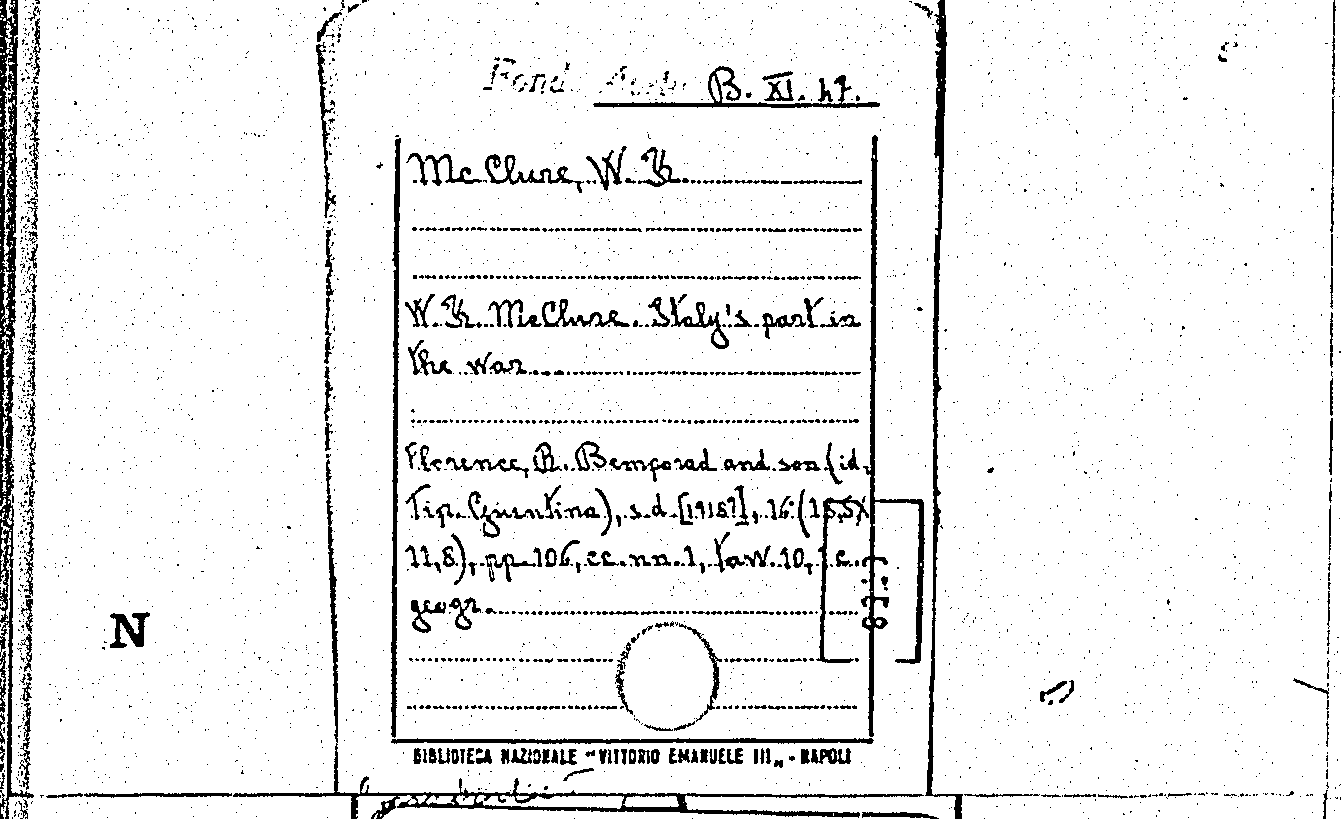 Fond. B. XI. 47.
Mc Clure, W. K.
W. K. McClure. Italy's part in
the war...
Florence, R. Bemporad and son (id.
Tip. Giuntina), s. d. [1918?], 16° (15,5X
11,8), pp. 106, cc. nn. 1, tav. 10, 1 c.
geogr.
N
BIBLIOTECA NAZIONALE "VITTORIO EMANUELE III„ - NAPOLI